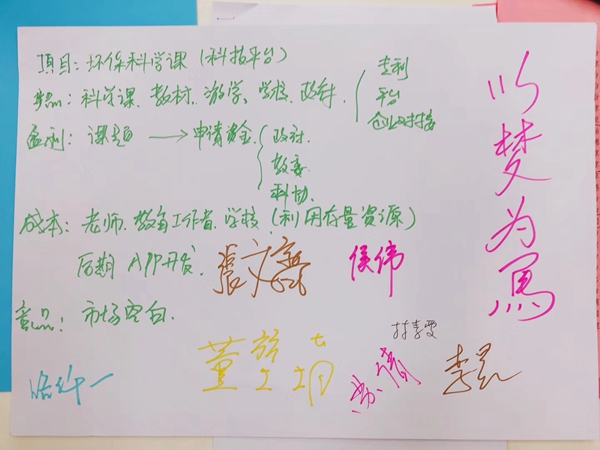 項目：环保科学课（科技平台）
专利
平台
企业对接
：科学课、教材、游学、学校、政府
盈利：课题 → 申请资金
政府
教委
科协
成本：老师、教育工作者、学校（利用存量資源）
后期 APP开发
：市场空白
以梦为馬
侯伟
董
李